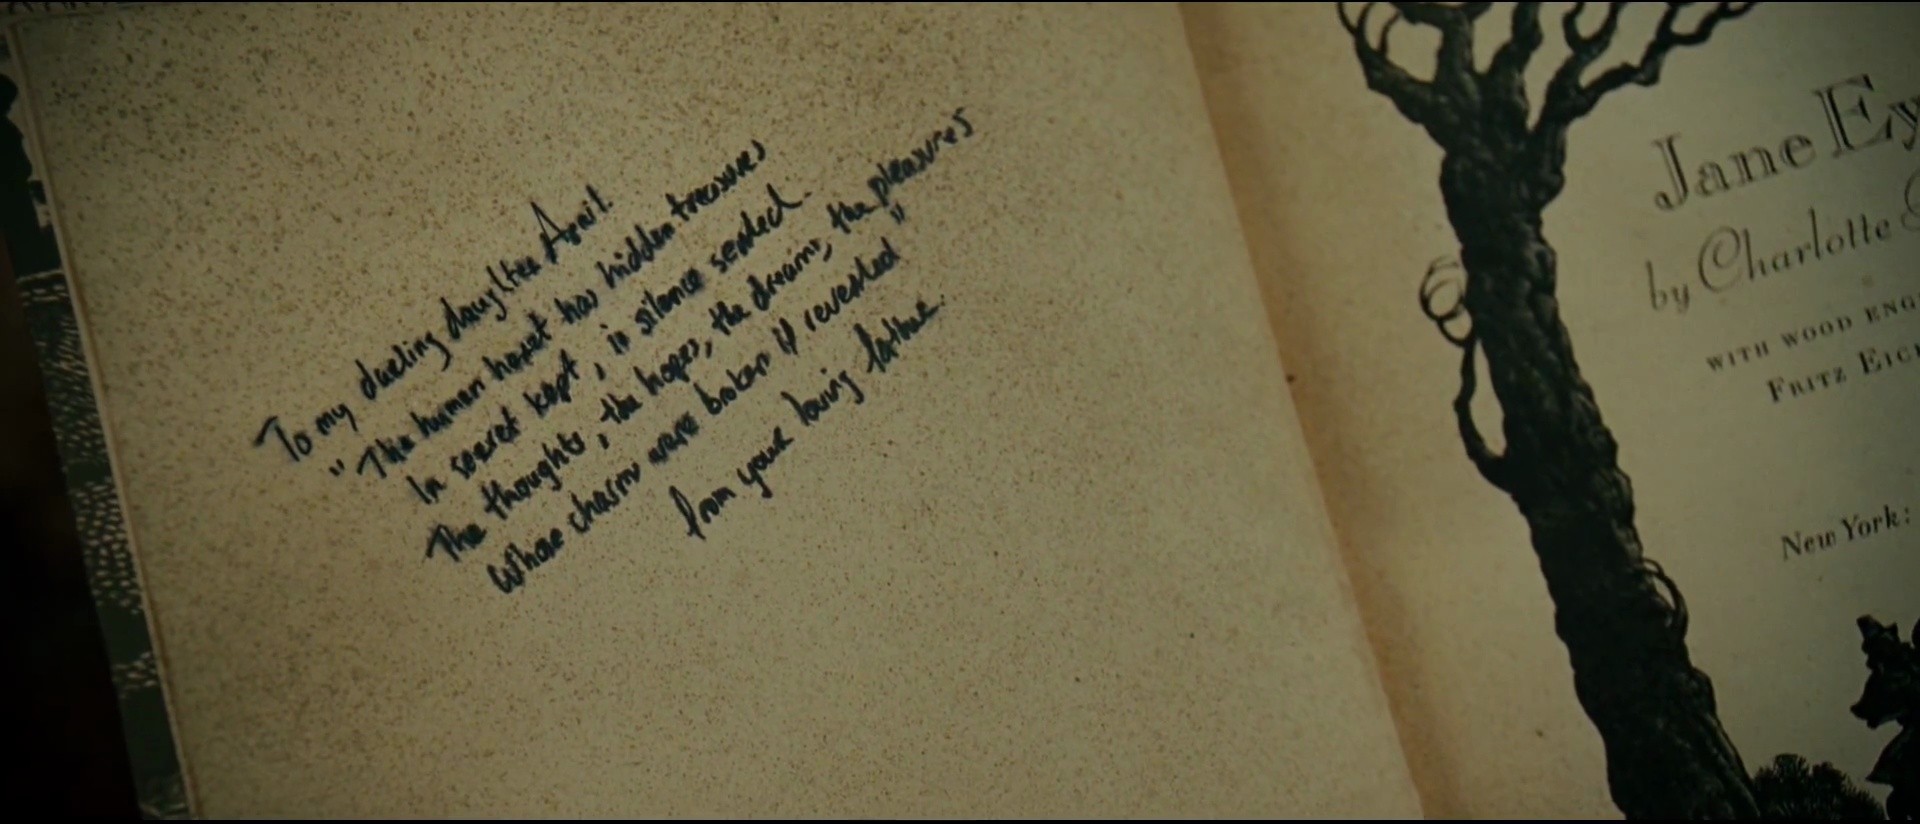 To my darling daughter April.
"The human heart has hidden treasures
In secret kept, in silence sealed.
The thoughts, the hopes, the dreams, the pleasures
Whose charms were broken if revealed"
from your loving father.
Jane Ey
by Charlotte
WITH WOOD ENG
FRITZ EIC
New York: